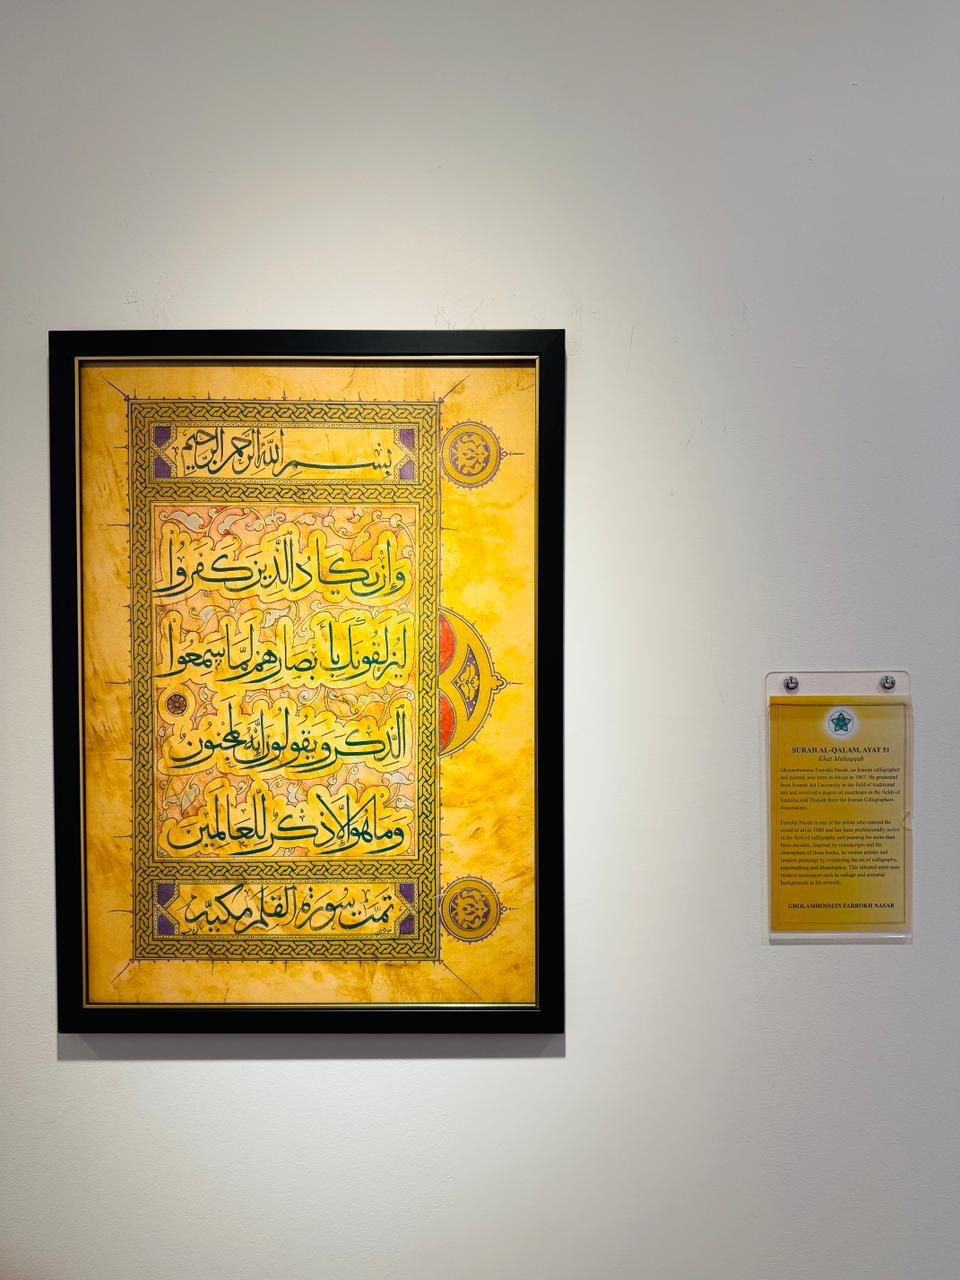 بسم الله الرحمن الرحيم
وَإِن يَكَادُ الَّذِينَ كَفَرُوا
لَيُزْلِقُونَكَ بِأَبْصَارِهِمْ لَمَّا سَمِعُوا
الذِّكْرَ وَيَقُولُونَ إِنَّهُ لَمَجْنُونٌ
وَمَا هُوَ إِلَّا ذِكْرٌ لِّلْعَالَمِينَ
تمت سورة القلم مكية
SURAH AL-QALAM, AYAT 51
Khat Muhaqqah
Gholamhossein Farrokh Nasab, an Iranian calligrapher
and painter, was born in Ahvaz in 1967. He graduated
from Sooreh Art University in the field of traditional
arts and received a degree of excellence in the fields of
Nastaliq and Thuluth from the Iranian Calligraphers
Association.
Farrokh Nasab is one of the artists who entered the
world of art in 1988 and has been professionally active
in the field of calligraphy and painting for more than
three decades. Inspired by manuscripts and the
atmosphere of these books, he creates artistic and
modern paintings by combining the art of calligraphy,
papermaking and illumination. This talented artist uses
modern techniques such as collage and
backgrounds in his artwork.
GHOLAMHOSSEIN FARROKH NASAB